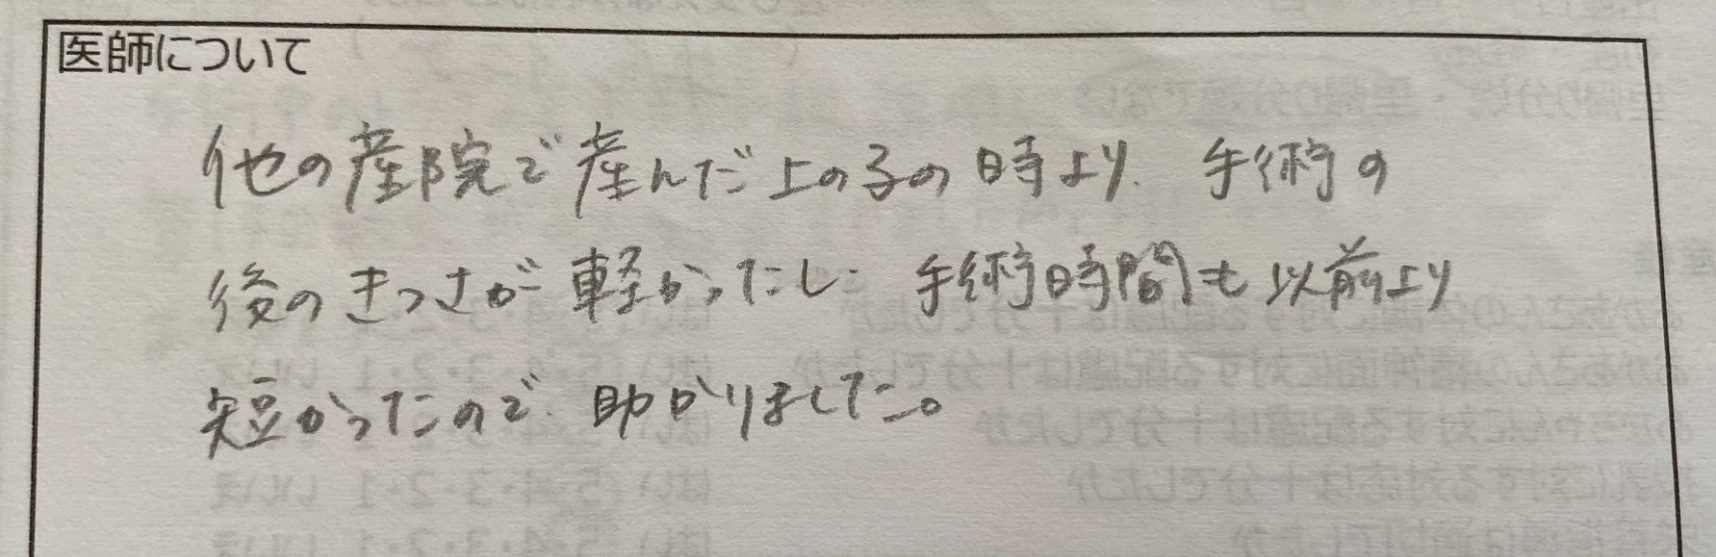 医師について
他の産院で産んだ上の子の時より、手術の
後のきつさが軽かったし、手術時間も以前より
短かったので、助かりました。